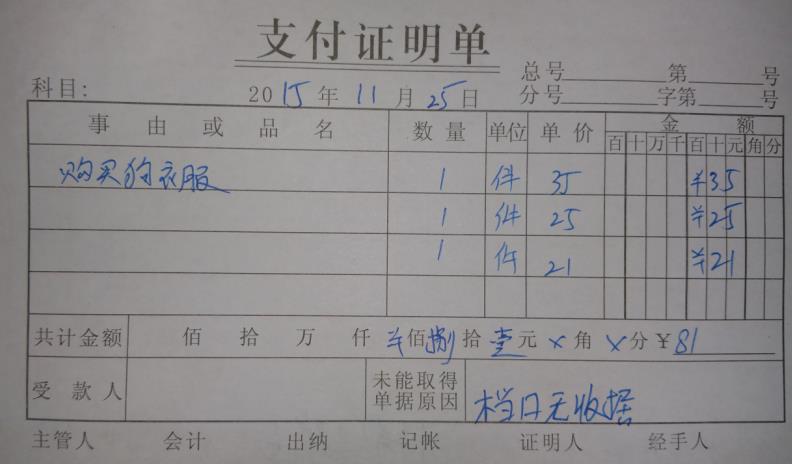 支付证明单
总号 第 号
科目: 2015年11月25日 分号 字第 号
事由或品名 数量 单位 单价 金额
百十万千百十元角分
购买狗衣服 1 件 35 ¥35
1 件 25 ¥25
1 件 21 ¥21
共计金额 佰 拾 万 仟 ¥佰捌拾壹元×角×分¥81
受款人 未能取得单据原因 档口无收据
主管人 会计 出纳 记帐 证明人 经手人